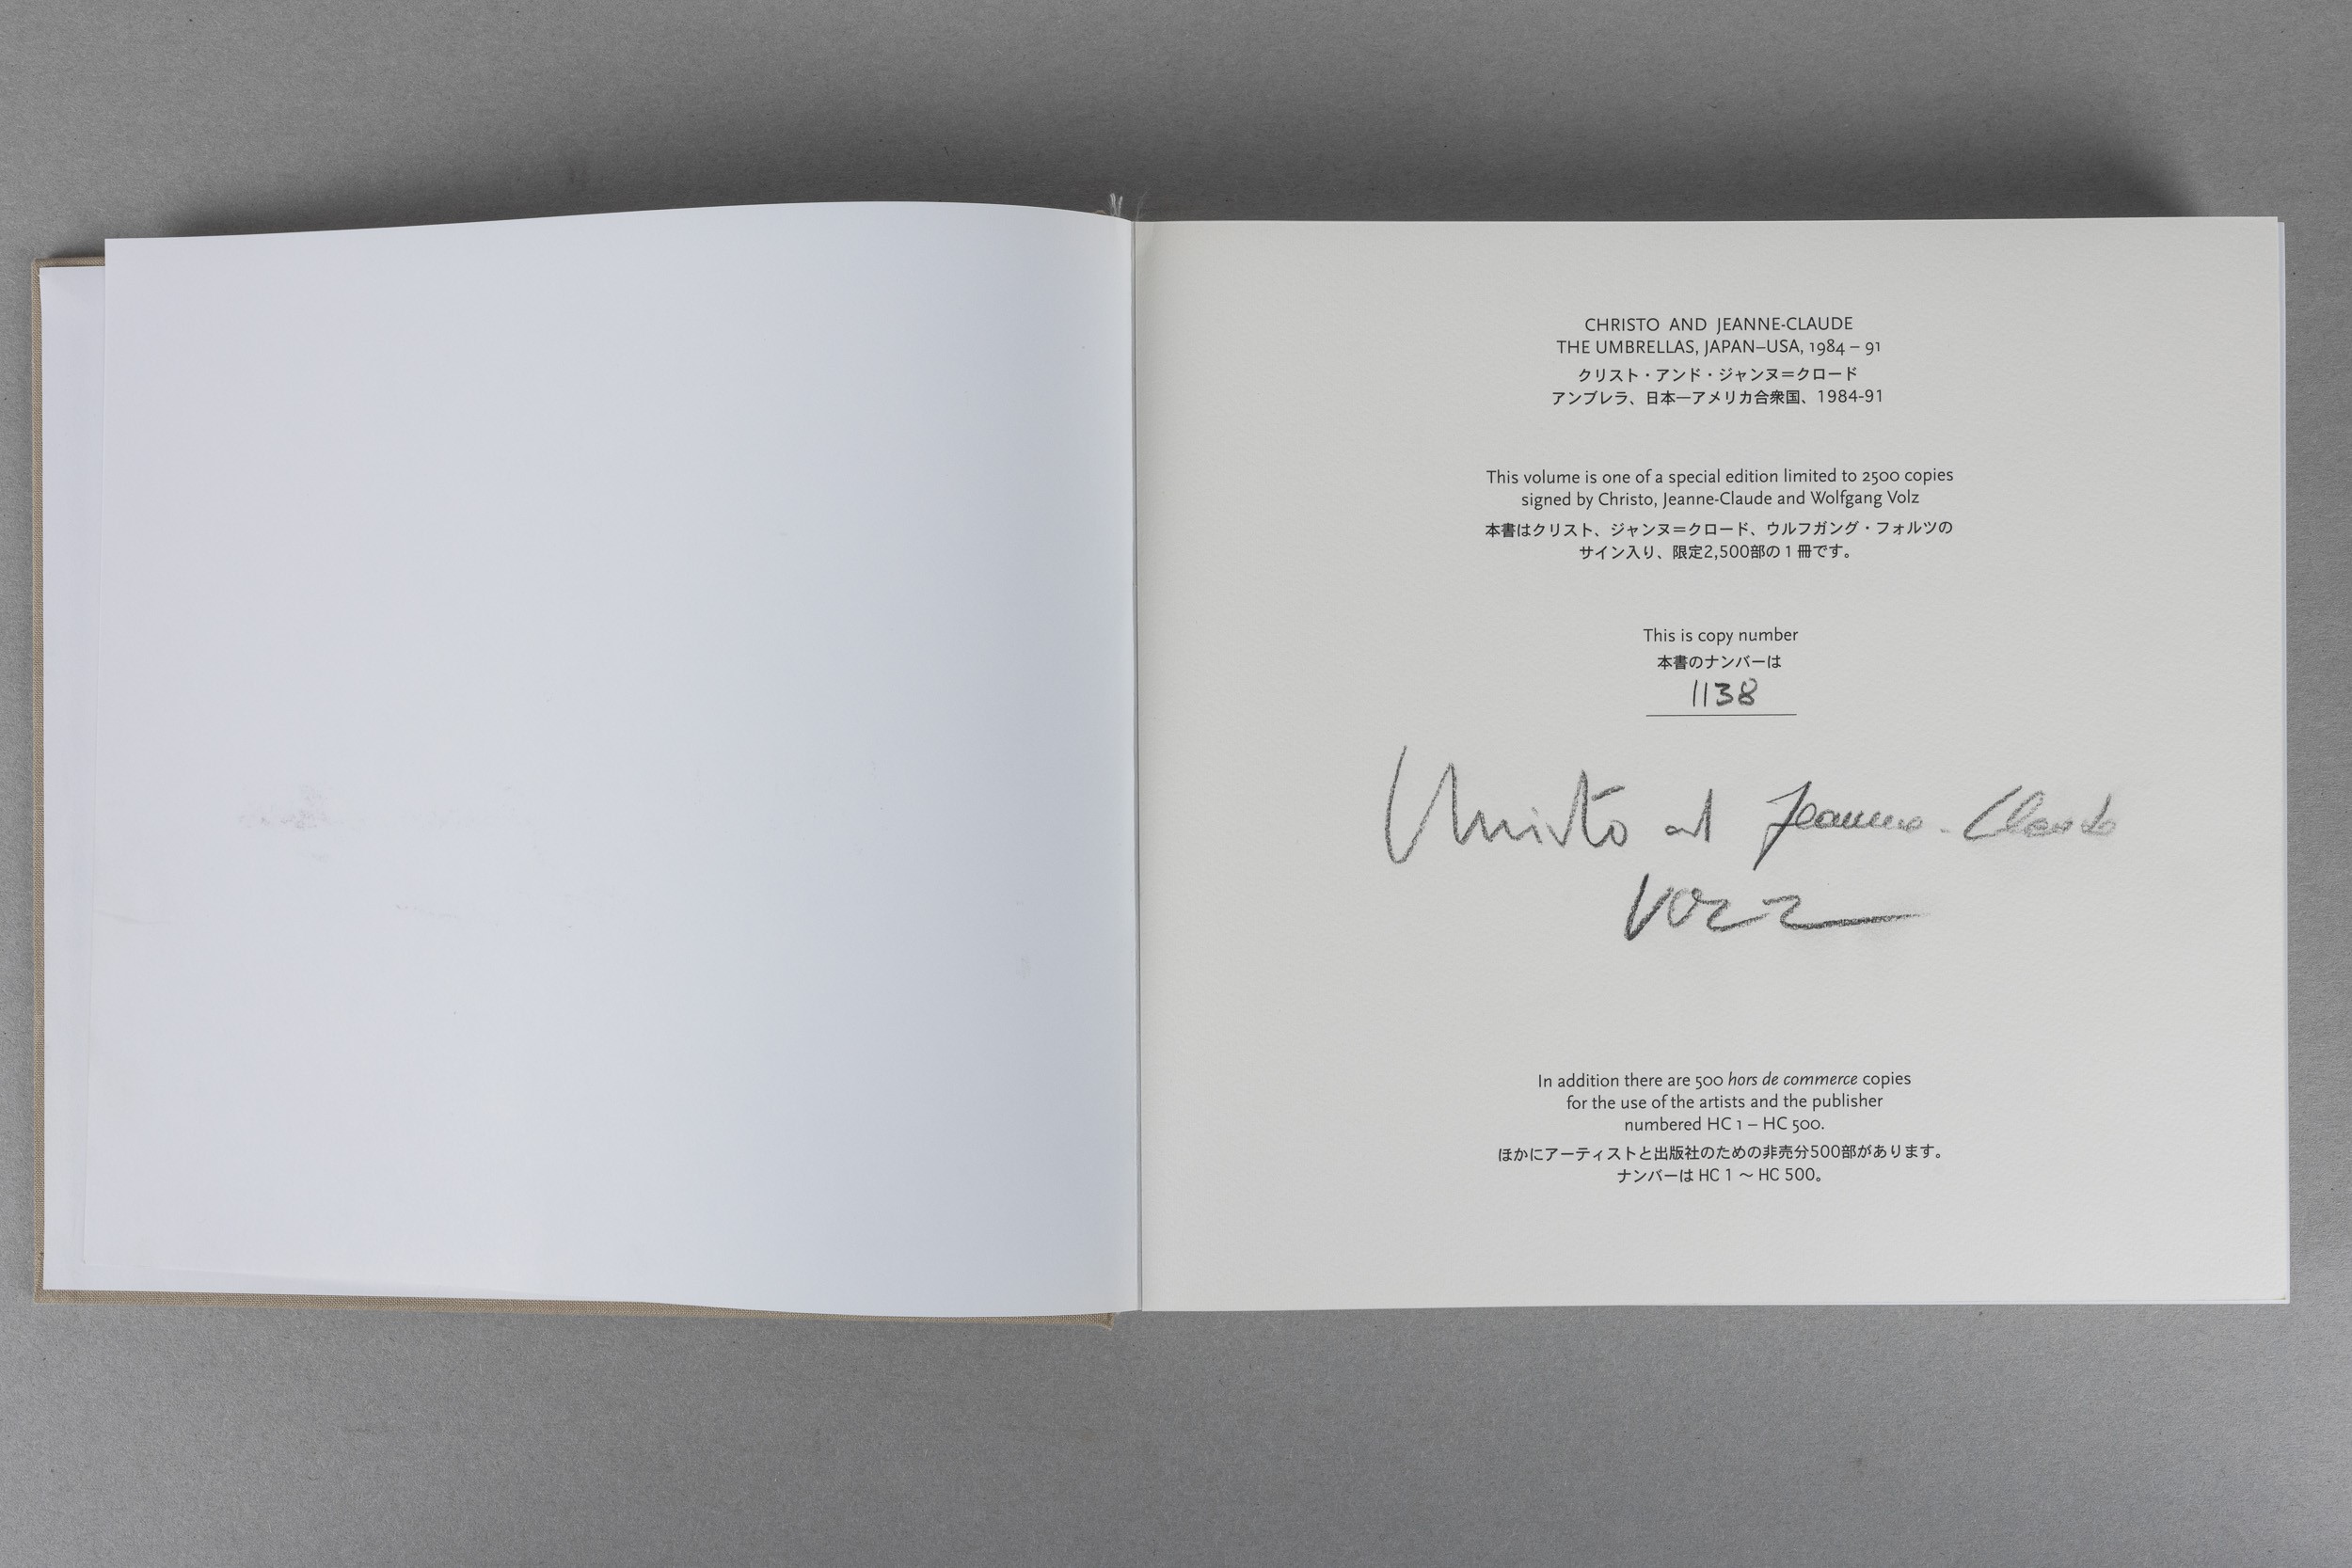 CHRISTO AND JEANNE-CLAUDE
THE UMBRELLAS, JAPAN–USA, 1984 – 91
クリスト・アンド・ジャンヌ=クロード
アンブレラ、日本—アメリカ合衆国、1984-91
This volume is one of a special edition limited to 2500 copies
signed by Christo, Jeanne-Claude and Wolfgang Volz
本書はクリスト、ジャンヌ=クロード、ウルフガング・フォルツの
サイン入り、限定2,500部の1冊です。
This is copy number
本書のナンバーは
1138
Christo et Jeanne-Claude
Volz
In addition there are 500 hors de commerce copies
for the use of the artists and the publisher
numbered HC 1 – HC 500.
ほかにアーティストと出版社のための非売分500部があります。
ナンバーは HC 1 ～ HC 500。